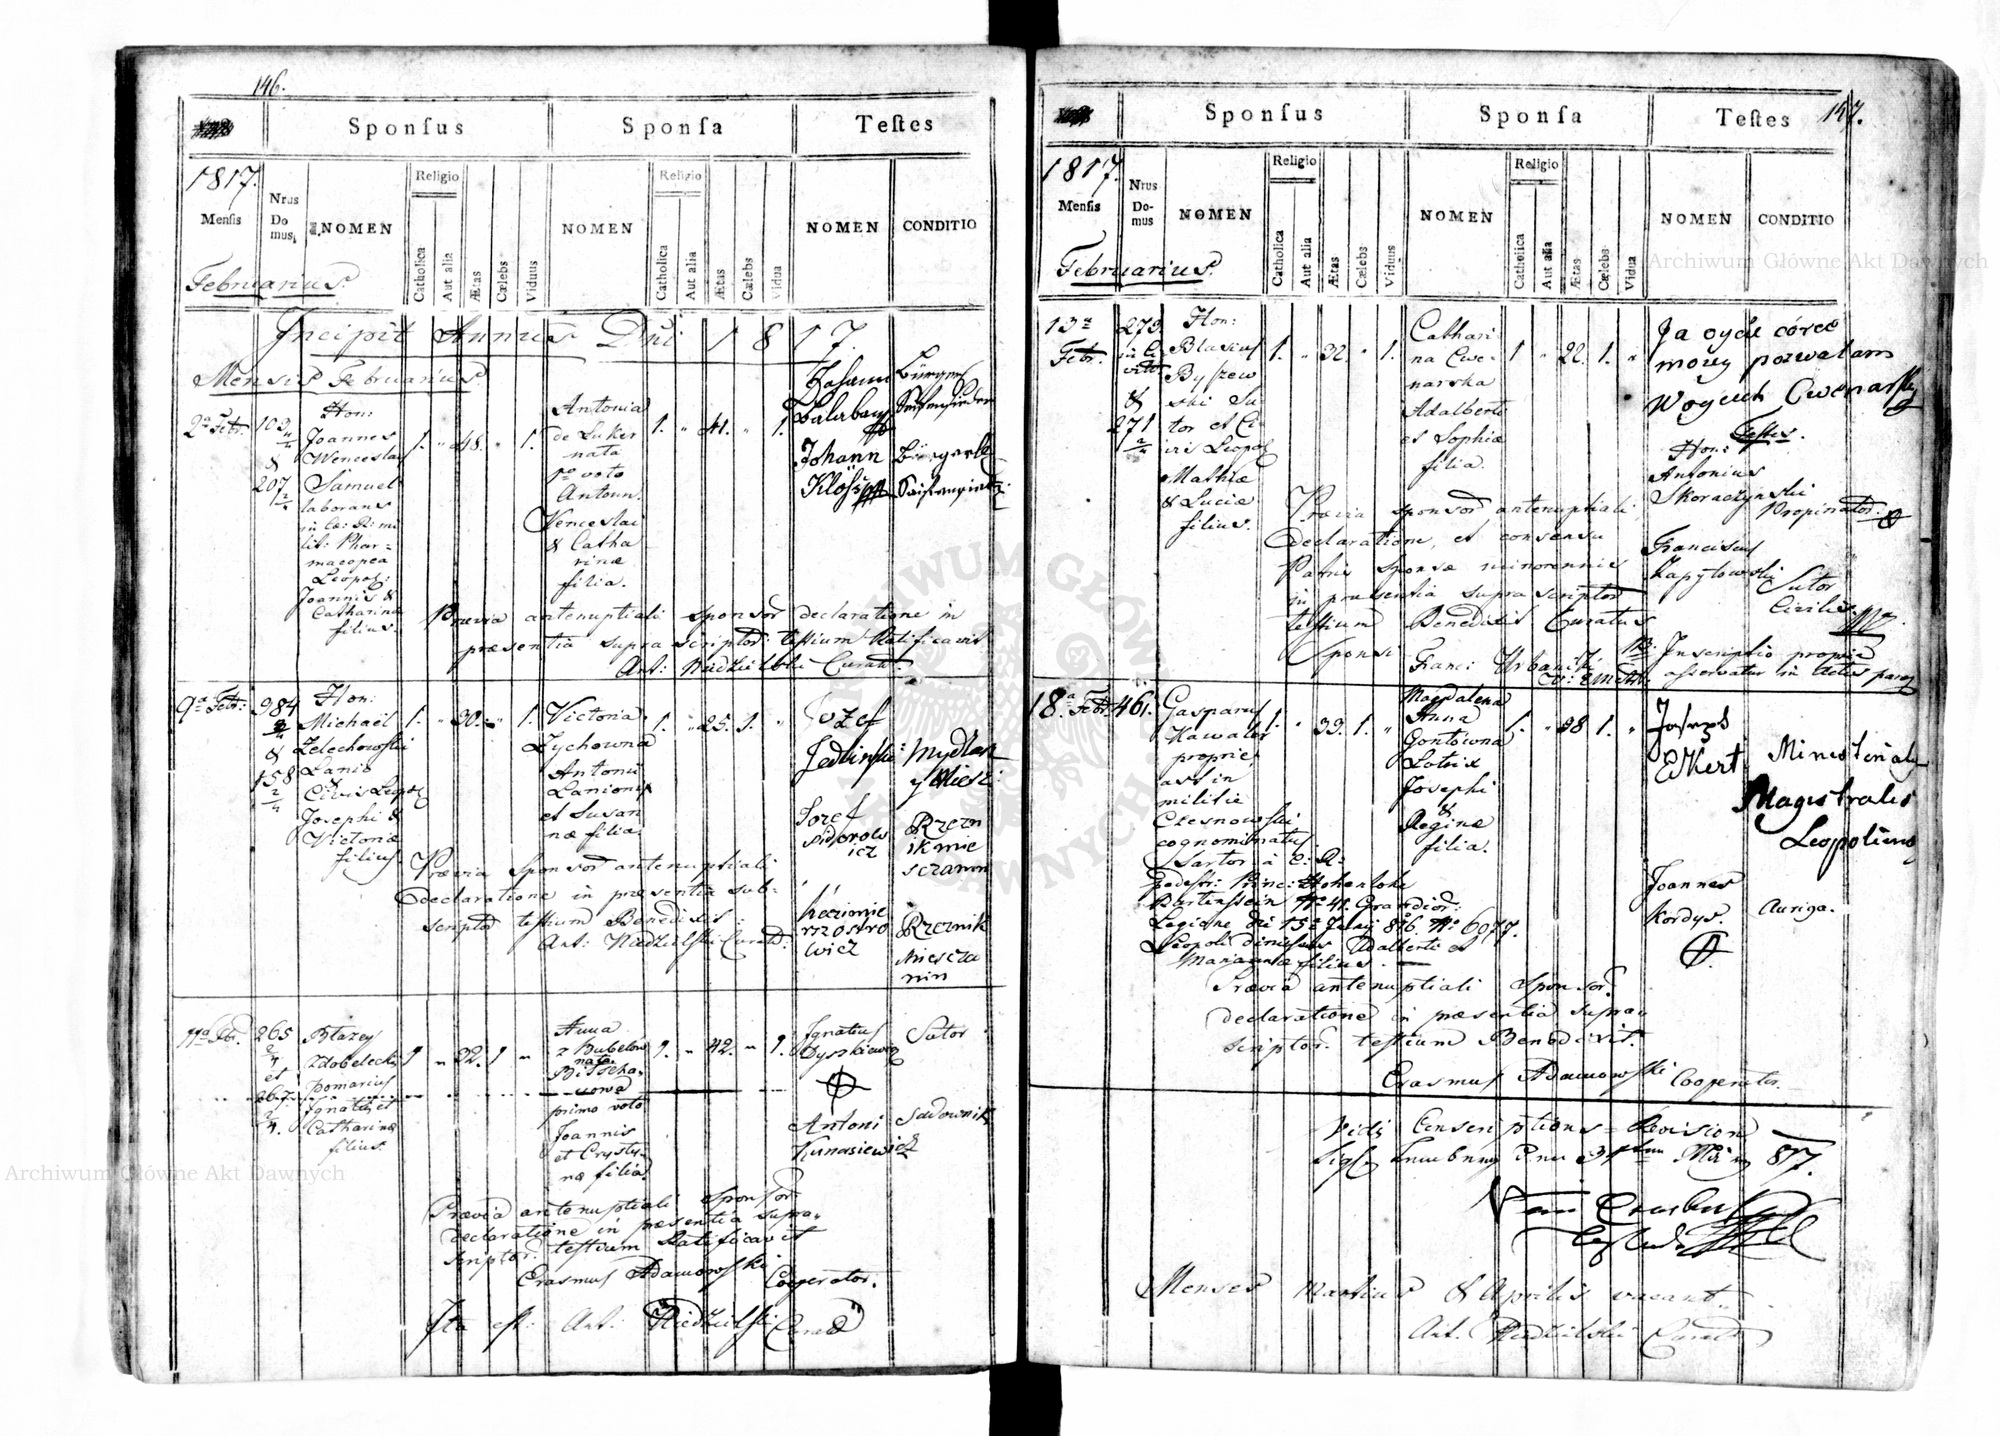 146.
Sponſus
Sponſa
Teſtes
1817.
Menſis
Nrus
Do
mus.
NOMEN
Religio
Catholica
Aut alia
Ætas
Cælebs
Viduus
NOMEN
Religio
Catholica
Aut alia
Ætas
Cælebs
Vidua
NOMEN
CONDITIO
Februarius.
Incipit Annus Dni 1817.
Mensis Februarius
2a Febr.
103
&
207
Hon:
Joannes
Wenceslaus
Samuel
laborans
lit: Phar=
macopea
Leopol:
Joannis &
Catharinæ
filius.
1. " 48. " 1.
Antonia
nata
1o voto
Antoun.
Venceslai
& Catha
rinæ
filia.
1. " 41. " 1.
Johann
Bürger
Johann
Prævia antenuptiali Sponsor declaratione in
præsentia suprascriptor: testium Ratificavit
Ant: Niedzielski Curat.
9a Febr:
984
&
158
Hon:
Michael
Zelechowski
Lanio
Civis Leopol
Josephi &
Victoriæ
filius
1. " 30. 1.
Victoria
Zychowna
Antonii
Lanionis
et Susan
næ filia.
1. " 25. 1. "
Jozef
Jedlinski
Mydlarz
y Miesz:
Jozef
Sidorow
icz
Rzezn
ik mie
sczanin
Kazimie
rz Ostro
wicz
Rzeznik
Miescza
nin
Prævia Sponsor antenuptiali
declaratione in præsentia sub=
scriptor testium Benedixit.
Ant: Niedzielski Curat:
11a Febr.
265
2/4
et
267.
2/4.
Błazey
Zdobelecki
Pomarius
Ignatii et
Catharinæ
filius.
1 " 32. 1 "
Anna
z Bubelow
nata
primo voto
Joannis
et Crysty-
næ filia
1. " 42. " 1.
Ignatius
Dyszkiewicz
Sutor
Antoni
Kunasiewicz
Sadownik
Prævia antenuptiali Sponsor.
declaratione in præsentia supra-
scriptor. testium Ratificavit
Erasmus Adamowski
Cooperator.
Ita est: Ant: Niedzielski Curat
147.
Sponſus
Sponſa
Teſtes
1817.
Menſis
Nrus
Do-
mus
NOMEN
Religio
Catholica
Aut alia
Ætas
Cælebs
Viduus
NOMEN
Religio
Catholica
Aut alia
Ætas
Cælebs
Vidua
NOMEN
CONDITIO
Februarius.
13a
Febr.
273
&
271
Hon:
Blasius
Byszew
ski Su
tor et Ci
vis Leopol
Mathiæ
& Luciæ
filius.
1. " 32. " 1.
Cathari
na Cwe-
narska
Adalberti
et Sophiæ
filia.
1 " 22. 1. "
Ja oycie córce
moiey pozwalam
Woyciech Cwenarsky
Testes.
Hon:
Antonius
Skoraczynski
Propinator.
Franciscus
Zapytowski
Sutor
Civilis.
Prævia sponsor antenuptiali
declaratione, et consensu
Patris sponsæ minorennis
in præsentia suprascriptor
testium Benedixit Curatus
Sponsi
Franc: Urbanik
NB. Inscriptio propria
asservatur in Actis paroc
18a Febr.
461.
Gasparus
Kawaler
proprie
ast in
militie
Czesnowski
cognominatus
Sartor a C: R:
Pedestr: Princ: Hohenlohe
Bartenstein No 41.
Legione
No 6077.
Leopoli dimissus Adalberti et
Mariannæ filius.
1. " 33. 1. "
Magdalena
Anna
Gontówna
Lotrix
Josephi
&
Reginæ
filia.
1. " 38 1. "
Joseph
Ekert
Ministerialis
Magistralis
Leopoliensis
Joannes
Kordys.
Auriga.
Prævia antenuptiali Sponsor.
declaratione in præsentia supra-
scriptor. testium Benedixit.
Erasmus Adamowski Cooperator.
Vidi Conscriptions-Revision
817.
Menses Martius & Aprilis vacant.
Ant. Niedzielski Curat
Archiwum Główne Akt Dawnych
Archiwum Główne Akt Dawnych
ARCHIWUM GŁÓWNE AKT DAWNYCH